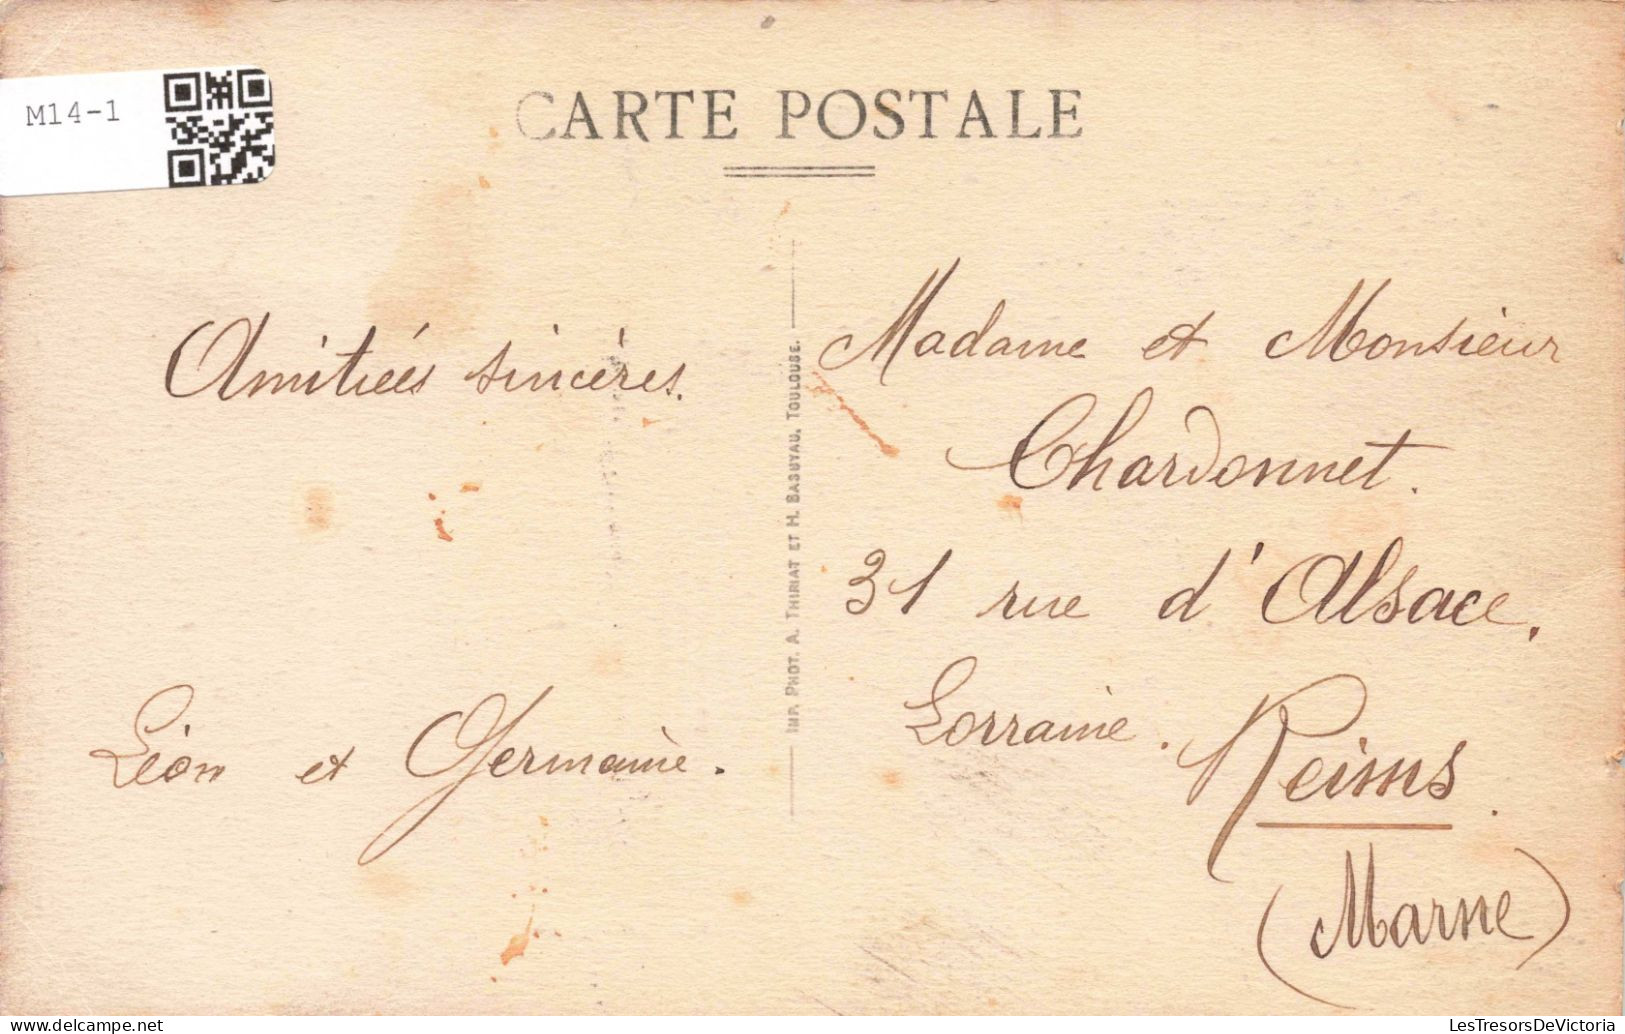 M14-1
CARTE POSTALE
Amitiées sincères.
Léon et Germaine.
IMP. PHOT. A. THIRIAT ET H. BASUYAU, TOULOUSE.
Madame et Monsieur
Chardonnet.
31 rue d'Alsace.
Lorraine.
Reims.
(Marne)
LesTresorsDeVictoria